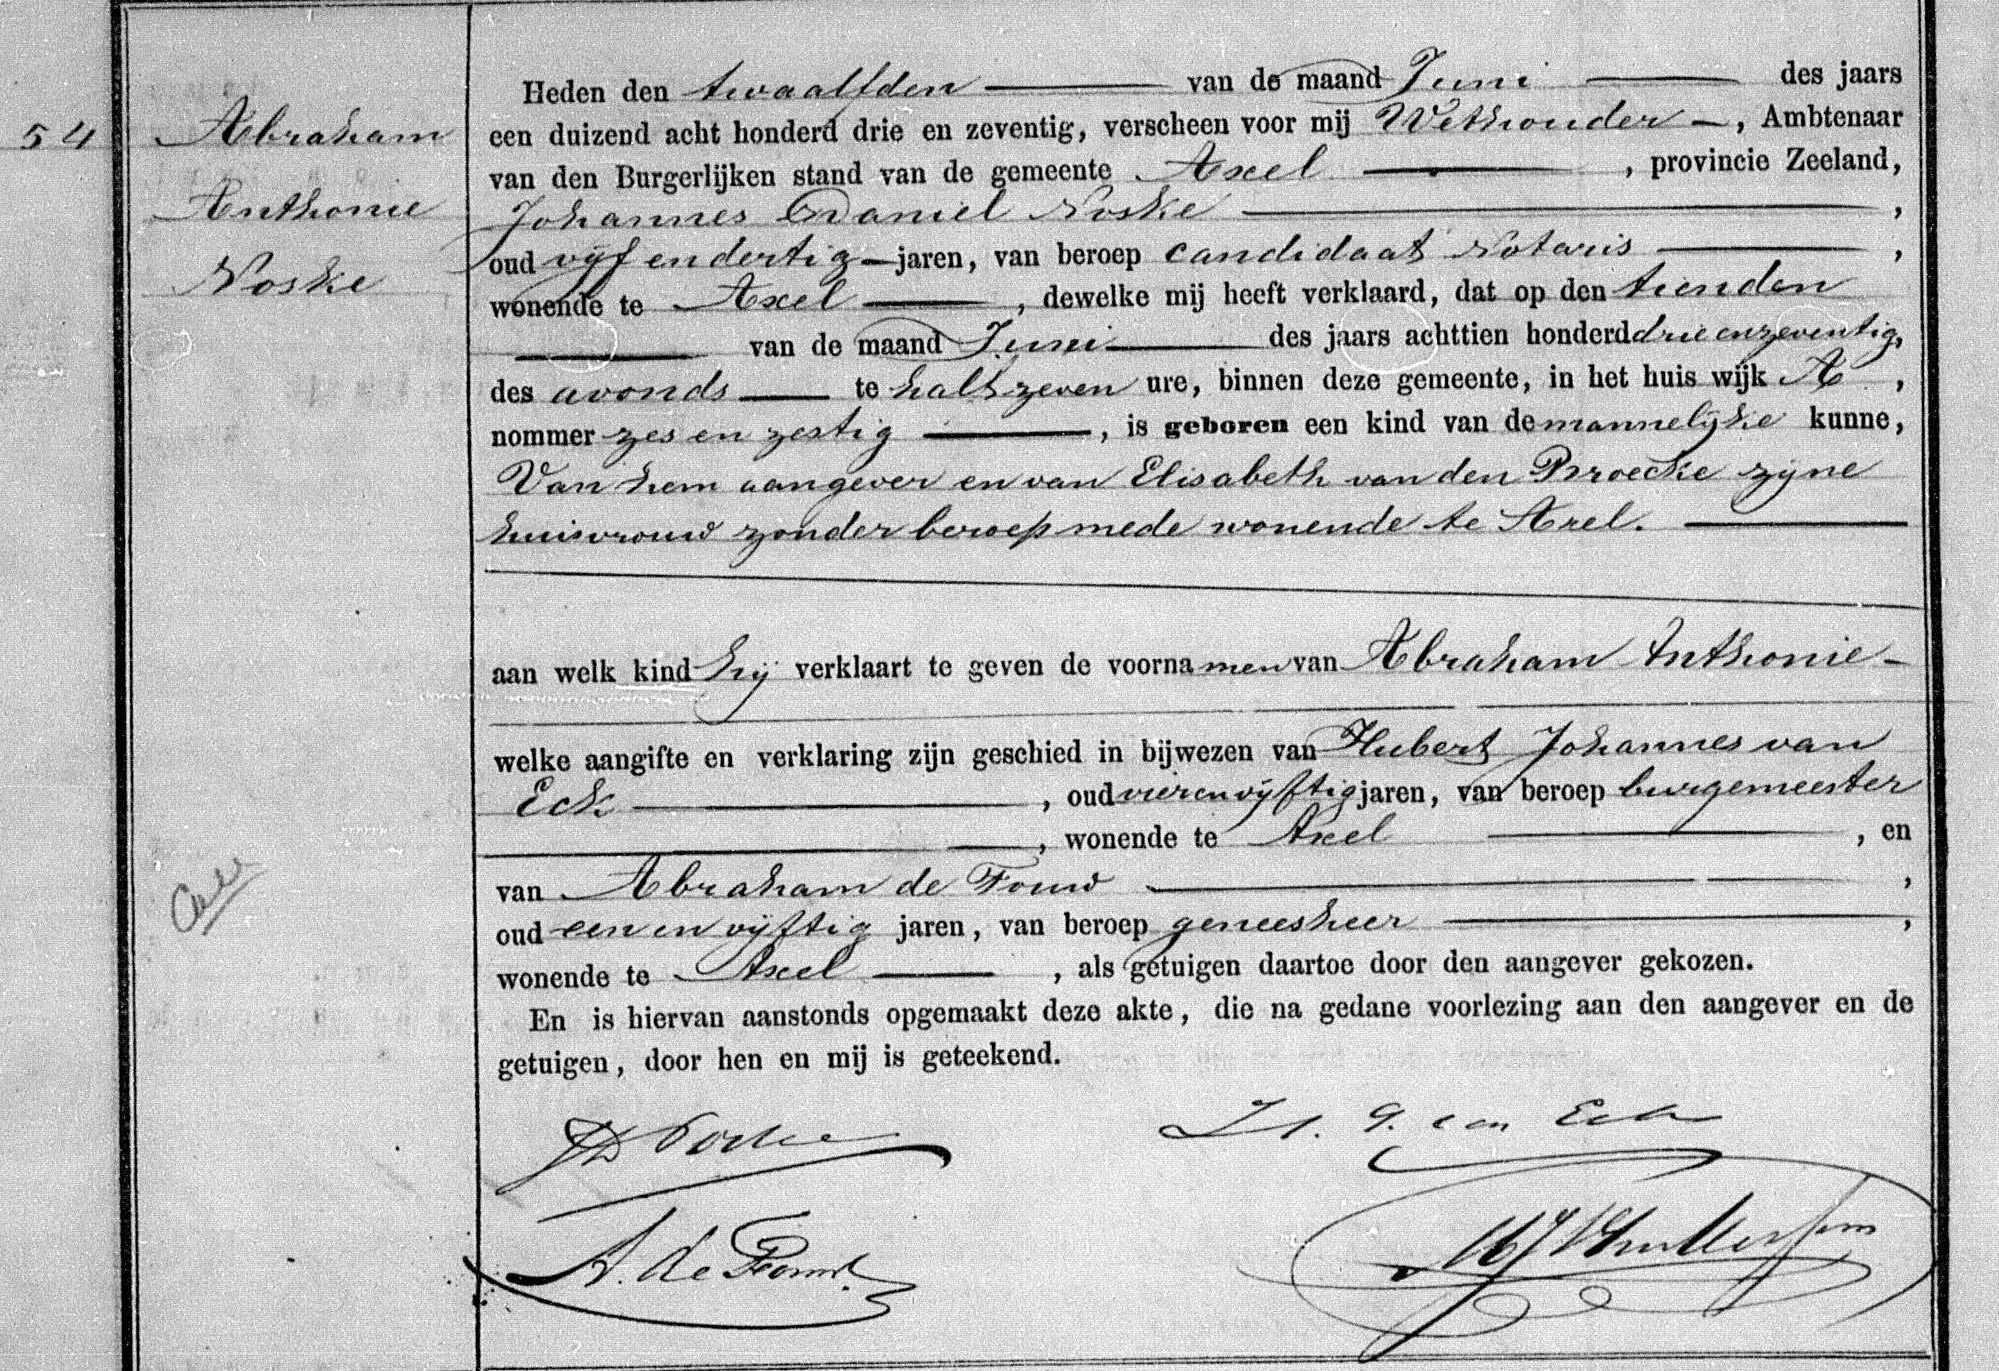 54
Abraham
Anthonie
Noske
Heden den twaalfden van de maand Juni des jaars
een duizend acht honderd drie en zeventig, verscheen voor mij Wethouder, Ambtenaar
van den Burgerlijken stand van de gemeente Axel, provincie Zeeland,
Johannes Daniel Noske,
oud vijf en dertig jaren, van beroep candidaat Notaris,
wonende te Axel, dewelke mij heeft verklaard, dat op den tienden
van de maand Juni des jaars achttien honderd drie en zeventig,
des avonds te half zeven ure, binnen deze gemeente, in het huis wijk A,
nommer zes en zestig, is geboren een kind van de mannelijke kunne,
Van hem aangever en van Elisabeth van den Broecke zijne
huisvrouw zonder beroep mede wonende te Axel.
aan welk kind hij verklaart te geven de voornamen van Abraham Anthonie
welke aangifte en verklaring zijn geschied in bijwezen van Hubert Johannes van
Eck, oud vier en vijftig jaren, van beroep burgemeester
, wonende te Axel, en
van Abraham de Fouw,
oud een en vijftig jaren, van beroep geneesheer,
wonende te Axel, als getuigen daartoe door den aangever gekozen.
En is hiervan aanstonds opgemaakt deze akte, die na gedane voorlezing aan den aangever en de
getuigen, door hen en mij is geteekend.
JD Noske
H. J. van Eck
A. de Fouw.